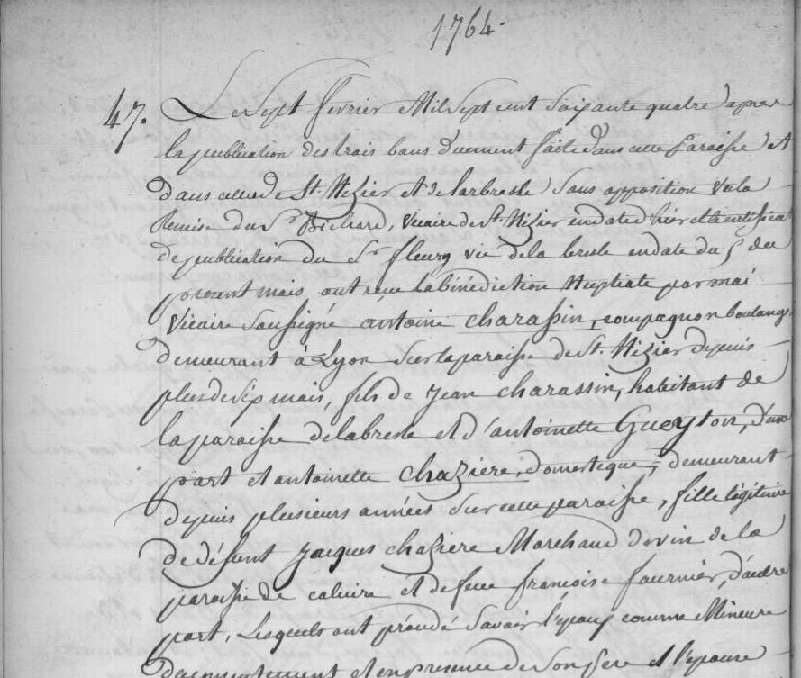 1764.
47. Le sept fevrier Mil sept cent soixante quatre apres
la publication des trois bans duement faite dans cette Paroisse et
dans celles de St. Nizier et de larbresle sans opposition vu la
Remise du Sr. Brichard, vicaire de St. Nizier en date d'hier et le certificat
de publication du Sr. fleury vic de la bresle en date du 5 du
present mois, ont reçu la bénédiction Nuptiale par moi
vicaire soussigné antoine charassin, compagnon boulang.
demeurant à Lyon sur la paroisse de St. Nizier depuis
plus de six mois, fils de jean charassin, habitant de
la paroisse de labresle et d'antoinette Gueyton, d'une
part et antoinette chaziere, domestique, demeurant
depuis plusieurs années sur cette paroisse, fille légitime
de défunt jacques chaziere Marchand de vin de la
paroisse de caluire et de feue francoise fournier, d'autre
part, Lesquels ont procédé savoir l'epoux comme Mineur
du consentement et en presence de son pere et l'epouse